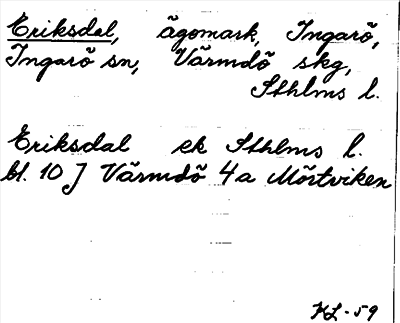 Eriksdal, ägomark, Ingarö,
Ingarö sn, Värmdö skg,
Sthlms l.
Eriksdal ek Sthlms l.
bl. 10 J Värmdö 4a Mörtviken
KL-59